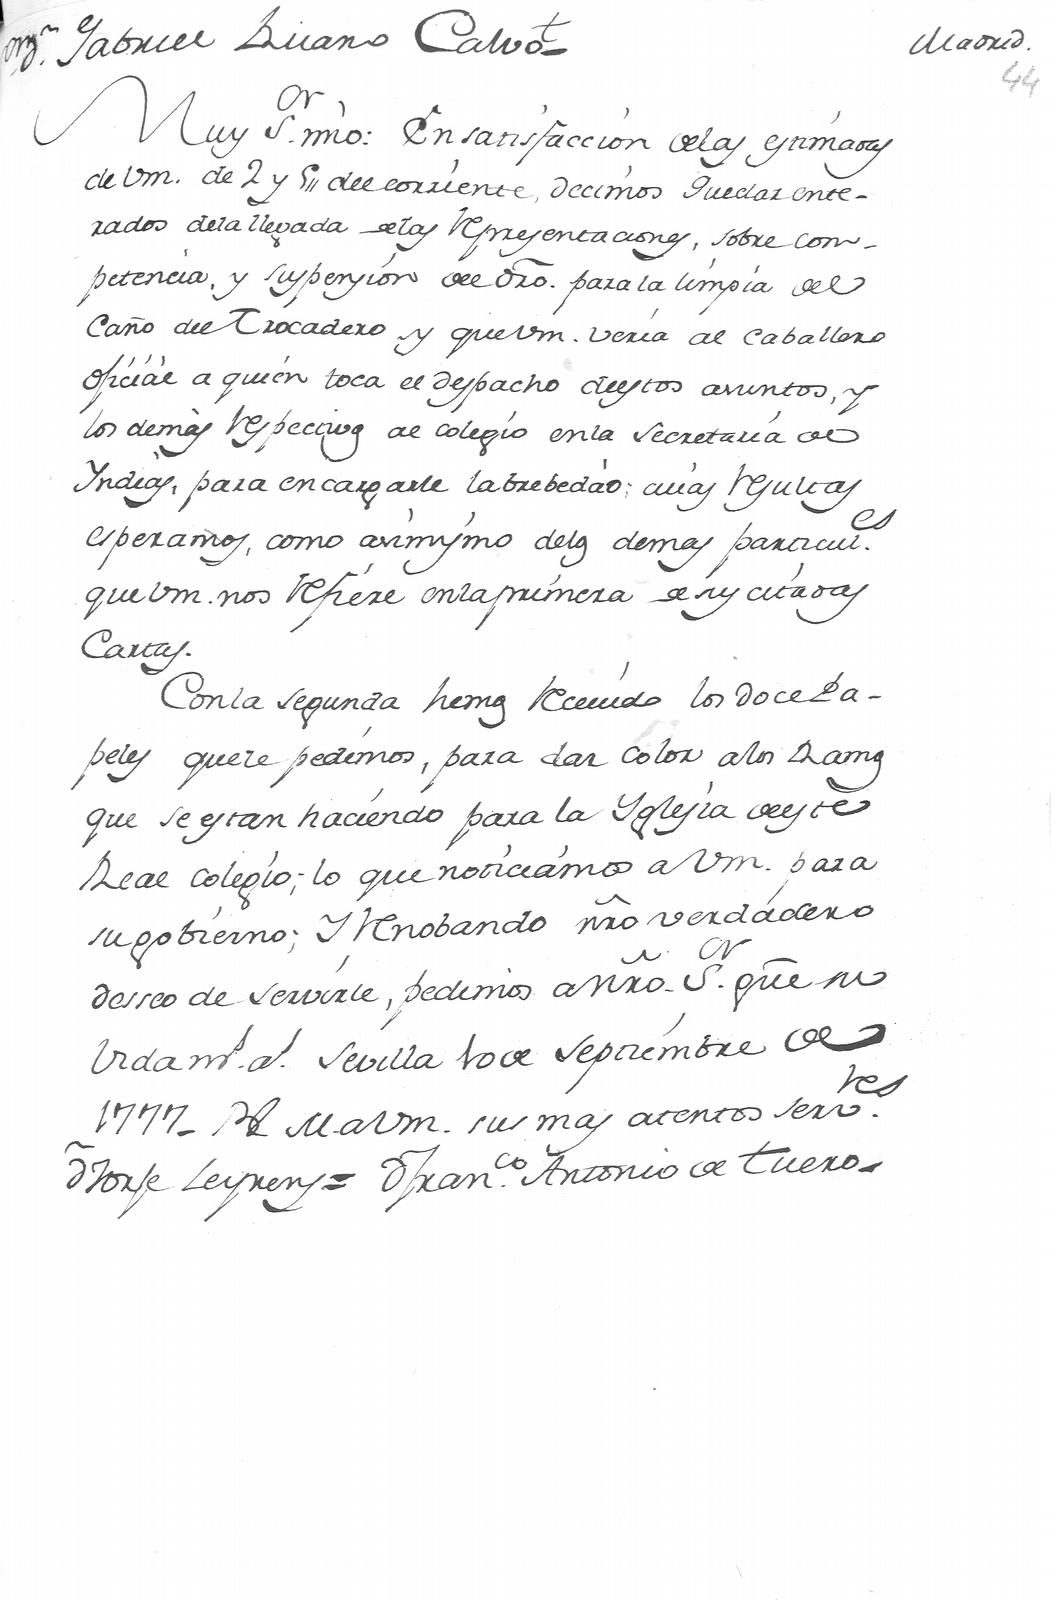 Sr. Dn. Gabriel Ruano Calvo Madrid.
44
Muy Sor. mio: En satisfaccion delas estimadas
de Vm. de 2 y 5,, del corriente, decimos quedar ente-
rados dela llegada delas representaciones, sobre com-
petencia, y suspension del dro. para la limpia del
Caño del Trocadero y que Vm. veria al caballero
oficial a quien toca el despacho de estos asuntos, y
los demas respectivos al colegio enla Secretaria de
Indias, para encargarle la brebedad; cuias resultas
esperamos, como asimismo delos demas particules.
que Vm. nos refiere enla primera de sus citadas
Cartas.
Con la segunda hemos recivido los doce Pa-
peles que le pedimos, para dar color a los Ramos
que se estan haciendo para la Yglesia deste
Real colegio; lo que noticiamos a Vm. para
su gobierno; Y renobando nro verdadero
desseo de servirle, pedimos a Nro. Sor. gue su
Vida ms. as. Sevilla 10 de Septiembre de
1777_ B L M a Vm. sus mas atentos servres.
Dn Jorje Leyrens = Dn Franco. Antonio de Tuero_